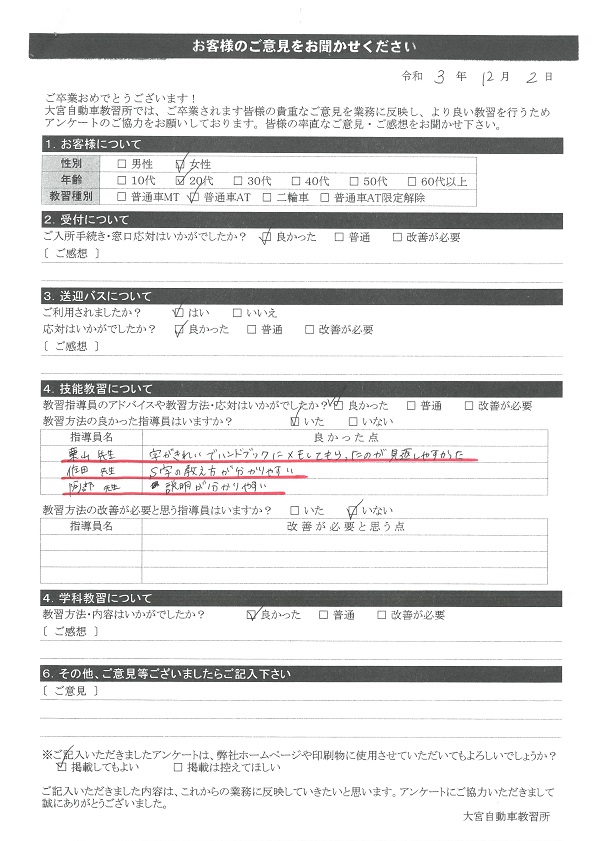 お客様のご意見をお聞かせください
令和 3 年 12 月 2 日
ご卒業おめでとうございます！
大宮自動車教習所では、ご卒業されます皆様の貴重なご意見を業務に反映し、より良い教習を行うため
アンケートのご協力をお願いしております。皆様の率直なご意見・ご感想をお聞かせ下さい。
1. お客様について
性別 □ 男性 ☑ 女性
年齢 □ 10代 ☑ 20代 □ 30代 □ 40代 □ 50代 □ 60代以上
教習種別 □ 普通車MT ☑ 普通車AT □ 二輪車 □ 普通車AT限定解除
2. 受付について
ご入所手続き・窓口応対はいかがでしたか？ ☑ 良かった □ 普通 □ 改善が必要
［ ご感想 ］
3. 送迎バスについて
ご利用されましたか？ ☑ はい □ いいえ
応対はいかがでしたか？ ☑ 良かった □ 普通 □ 改善が必要
［ ご感想 ］
4. 技能教習について
教習指導員のアドバイスや教習方法・応対はいかがでしたか？ ☑ 良かった □ 普通 □ 改善が必要
教習方法の良かった指導員はいますか？ ☑ いた □ いない
指導員名 良かった点
栗山 先生 字がきれいでハンドブックにメモしてもらったのが見返しやすかった
作田 先生 S字の教え方が分かりやすい
阿部 先生 説明が分かりやすい
教習方法の改善が必要と思う指導員はいますか？ □ いた ☑ いない
指導員名 改善が必要と思う点
4. 学科教習について
教習方法・内容はいかがでしたか？ ☑ 良かった □ 普通 □ 改善が必要
［ ご感想 ］
6. その他、ご意見等ございましたらご記入下さい
［ ご意見 ］
※ご記入いただきましたアンケートは、弊社ホームページや印刷物に使用させていただいてもよろしいでしょうか？
☑ 掲載してもよい □ 掲載は控えてほしい
ご記入いただきました内容は、これからの業務に反映していきたいと思います。アンケートにご協力いただきまして
誠にありがとうございました。
大宮自動車教習所